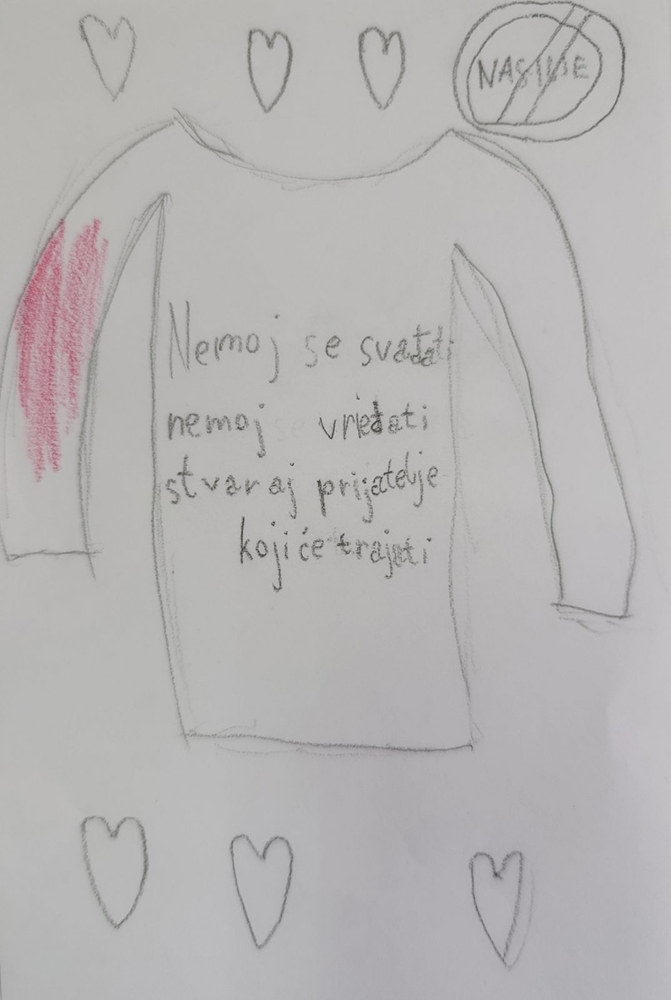 NASILJE
Nemoj se svađati
nemoj vrjeđati
stvaraj prijatelje
koji će trajati